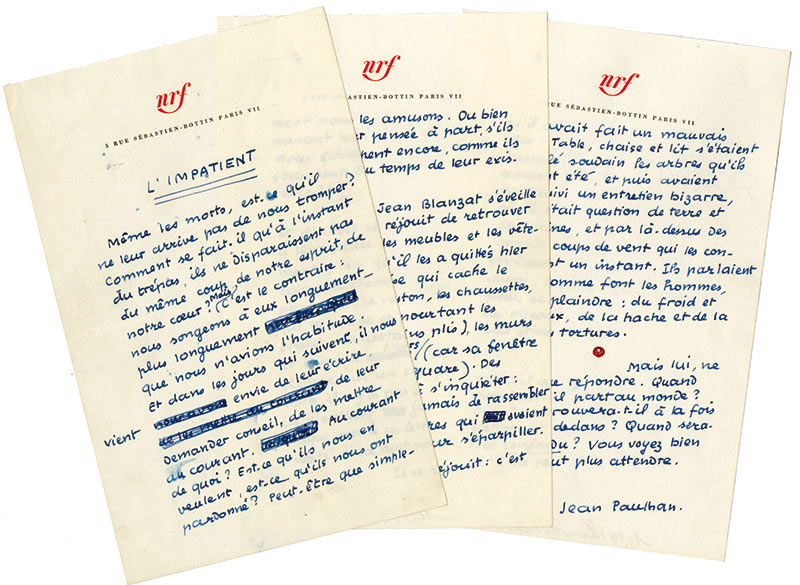 nrf
5 RUE SÉBASTIEN-BOTTIN PARIS VII
L'IMPATIENT
Même les morts, est-ce qu'il
ne leur arrive pas de nous tromper?
Comment se fait-il qu'à l'instant
du trépas, ils ne disparaissent pas
du même coup de notre esprit, de
notre cœur? Mais c'est le contraire:
nous songeons à eux longuement_
plus longuement
que nous n'avions l'habitude.
Et dans les jours qui suivent, il nous
vient envie de leur écrire,
de leur
demander conseil, de les mettre
au courant. Au courant
de quoi? Est-ce qu'ils nous en
veulent, est-ce qu'ils nous ont
pardonné? Peut-être que simple-
nrf
RUE SÉBASTIEN-BOTTIN PARIS VII
les amusons. Ou bien
pensée à part, s'ils
ent encore, comme ils
u temps de leur exis-
Jean Blanzat s'éveille
réjouit de retrouver
les meubles et les vête-
u'il les a quittés hier
se qui cache le
ston, les chaussettes,
pourtant les
us plis), les murs
(car sa fenêtre
quare). Des
s'inquiéter:
amais de rassembler
res qui avaient
ur s'éparpiller.
éjouit: c'est
nrf
RUE SÉBASTIEN-BOTTIN PARIS VII
avait fait un mauvais
Table, chaise et lit s'étaient
lé soudain les arbres qu'ils
ent été, et puis avaient
uivi un entretien bizarre,
était question de terre et
ines, et par là-dessus des
coups de vent qui les con-
st un instant. Ils parlaient
omme font les hommes,
plaindre: du froid et
aux, de la hache et de la
tortures.
Mais lui, ne
e répondre. Quand
il part au monde?
rouvera-t-il à la fois
dedans? Quand sera-
Du? Vous voyez bien
peut plus attendre.
Jean Paulhan.